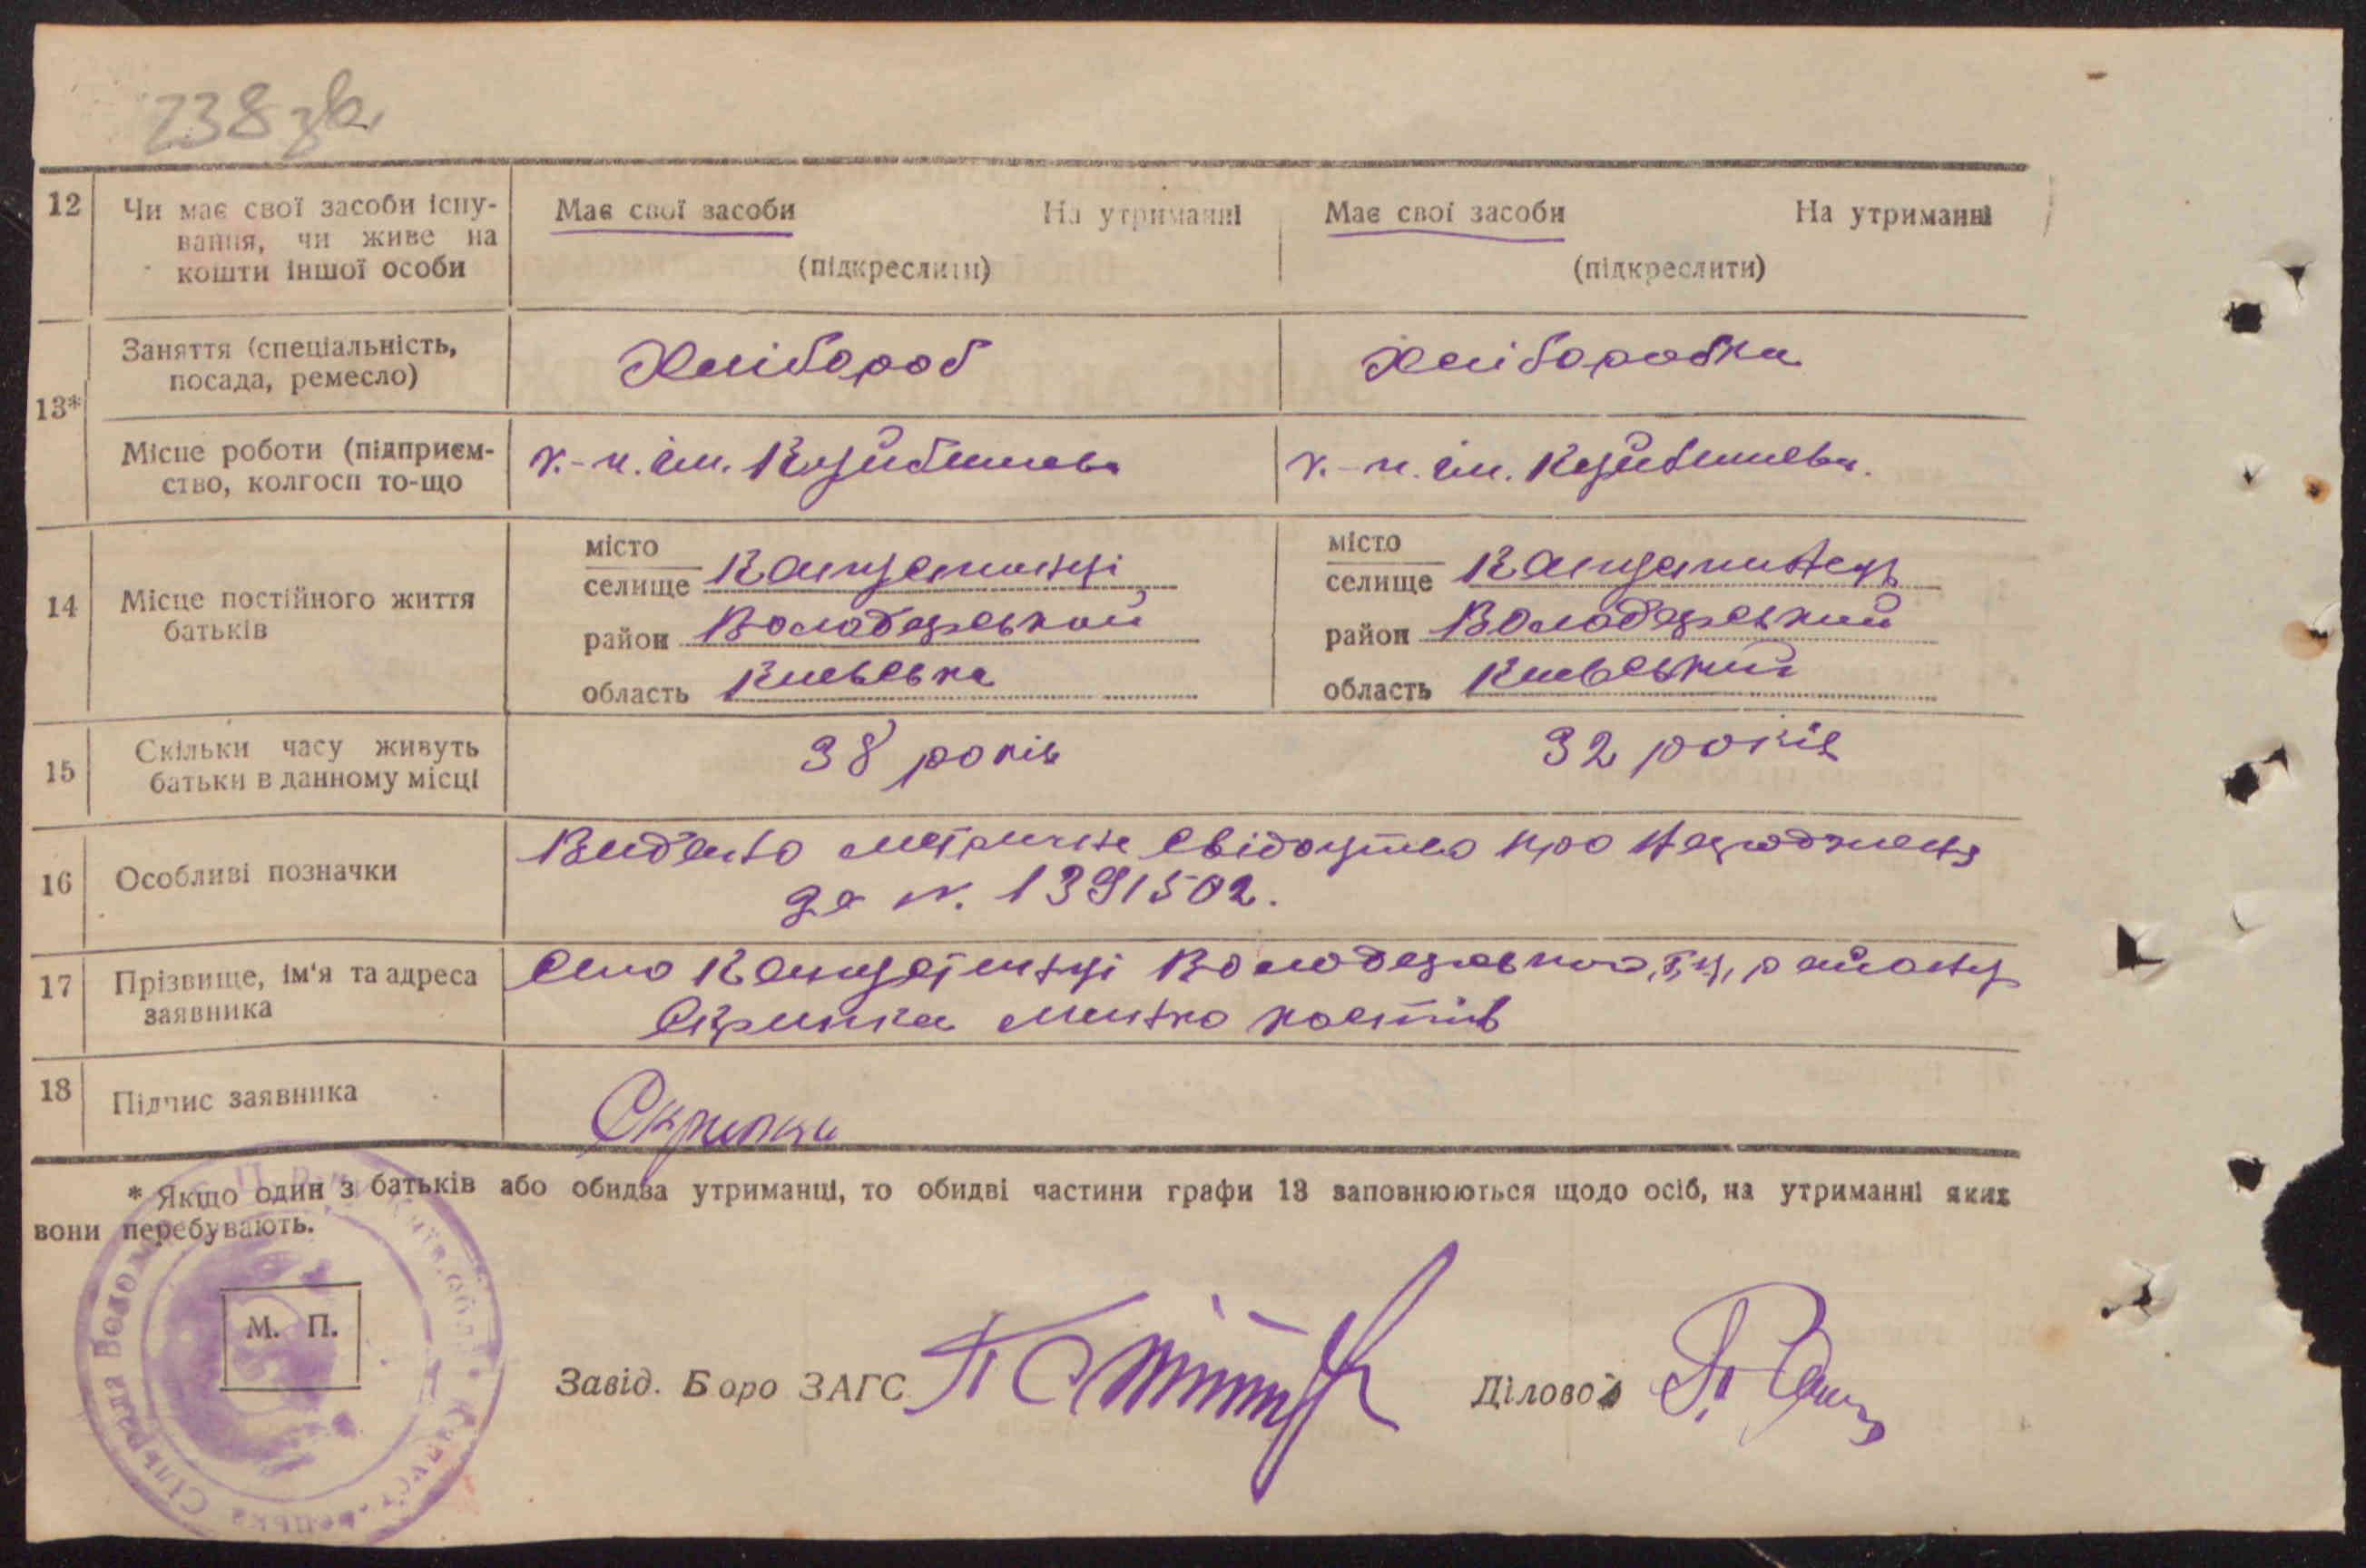 238 зв.
12 Чи має свої засоби існу- Має свої засоби На утриманні Має свої засоби На утриманні
вання, чи живе на
кошти іншої особи (підкреслити) (підкреслити)
13* Заняття (спеціальність, Хлібороб Хлі боробка
посада, ремесло)
Місце роботи (підприєм- к.-п. ім. Куйбишева к.-п. ім. Куйбишева.
ство, колгосп то-що
14 Місце постійного життя
батьків
місто
селище
район Володарський
область Київська
місто
селище
район Володарський
область Київський
15 Скільки часу живуть 38 років 32 років
батьки в данному місці
16 Особливі позначки Видано метричне свідоцтво про народження
за №. 1391502.
17 Прізвище, ім'я та адреса Село району
заявника Скрипка
18 Підпис заявника Скрипка
* Якщо один з батьків або обидва утриманці, то обидві частини графи 13 заповнюються щодо осіб, на утриманні яких
вони перебувають.
М. П.
Завід. Боро ЗАГС Діловод